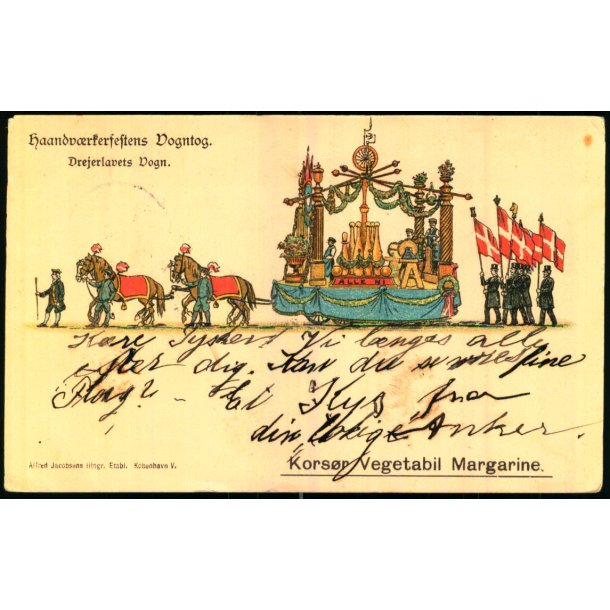 Haandværkerfestens Vogntog.
Drejerlavets Vogn.
ALLE NI
Kære Syskend Vi længes alle
efter dig. Kan du se vores fine
Flag? – Et Kys fra
din Anker.
Alfred Jacobsens lithgr. Etabl. København V.
Korsør Vegetabil Margarine.